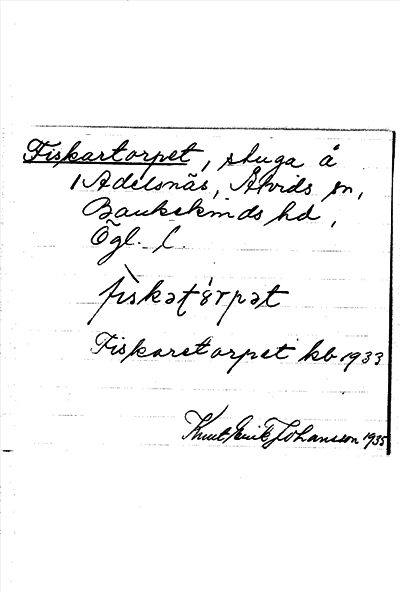 Fiskartorpet, stuga å
1 Adelsnäs, Åtvids sn,
Bankekinds hd,
Ögl. l.
fìskət'ɔrpət
Fiskaretorpet kb 1933
Knut Erik Johansson 1935